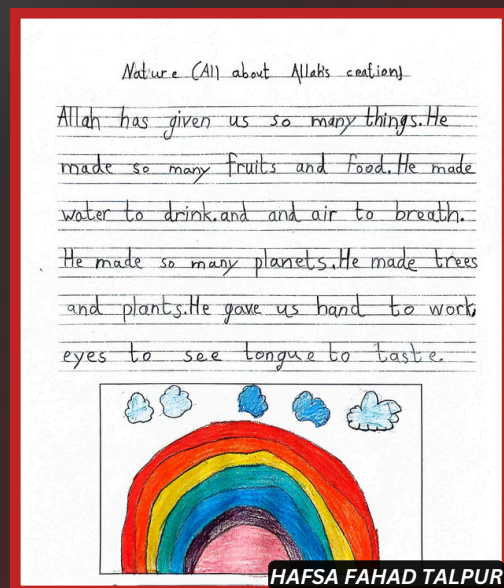 Nature (All about Allah's creation)
Allah has given us so many things.He
made so many fruits and food.He made
water to drink.and and air to breath.
He made so many planets.He made trees
and plants.He gave us hand to work,
eyes to see tongue to taste.
HAFSA FAHAD TALPUR